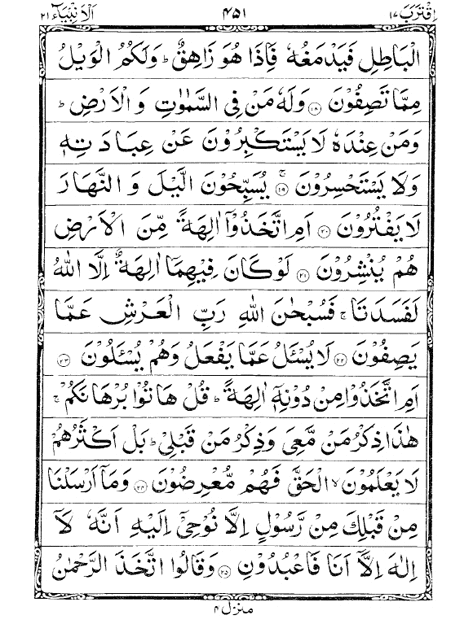 اقترب ١٤ ٤٥١ الانبیآء ٢١
الْبَاطِلِ فَیَدْمَغُهٗ فَاِذَا هُوَ زَاهِقٌ ؕ وَلَكُمُ الْوَیْلُ
مِمَّا تَصِفُوْنَ ۝١٨ وَلَهٗ مَنْ فِی السَّمٰوٰتِ وَ الْاَرْضِ ؕ
وَمَنْ عِنْدَهٗ لَا یَسْتَكْبِرُوْنَ عَنْ عِبَادَتِهٖ
وَلَا یَسْتَحْسِرُوْنَ ۚ۝١٩ یُسَبِّحُوْنَ الَّیْلَ وَ النَّهَارَ
لَا یَفْتُرُوْنَ ۝٢٠ اَمِ اتَّخَذُوْۤا اٰلِهَةً مِّنَ الْاَرْضِ
هُمْ یُنْشِرُوْنَ ۝٢١ لَوْ كَانَ فِیْهِمَاۤ اٰلِهَةٌ اِلَّا اللّٰهُ
لَفَسَدَتَا ۚ فَسُبْحٰنَ اللّٰهِ رَبِّ الْعَرْشِ عَمَّا
یَصِفُوْنَ ۝٢٢ لَا یُسْـَٔلُ عَمَّا یَفْعَلُ وَهُمْ یُسْـَٔلُوْنَ ۝٢٣
اَمِ اتَّخَذُوْا مِنْ دُوْنِهٖۤ اٰلِهَةً ؕ قُلْ هَاتُوْا بُرْهَانَكُمْ ۚ
هٰذَا ذِكْرُ مَنْ مَّعِیَ وَذِكْرُ مَنْ قَبْلِیْ ؕ بَلْ اَكْثَرُهُمْ
لَا یَعْلَمُوْنَ ۙ الْحَقَّ فَهُمْ مُّعْرِضُوْنَ ۝٢٤ وَمَاۤ اَرْسَلْنَا
مِنْ قَبْلِكَ مِنْ رَّسُوْلٍ اِلَّا نُوْحِیْۤ اِلَیْهِ اَنَّهٗ لَاۤ
اِلٰهَ اِلَّاۤ اَنَا فَاعْبُدُوْنِ ۝٢٥ وَقَالُوا اتَّخَذَ الرَّحْمٰنُ
منزل ٤